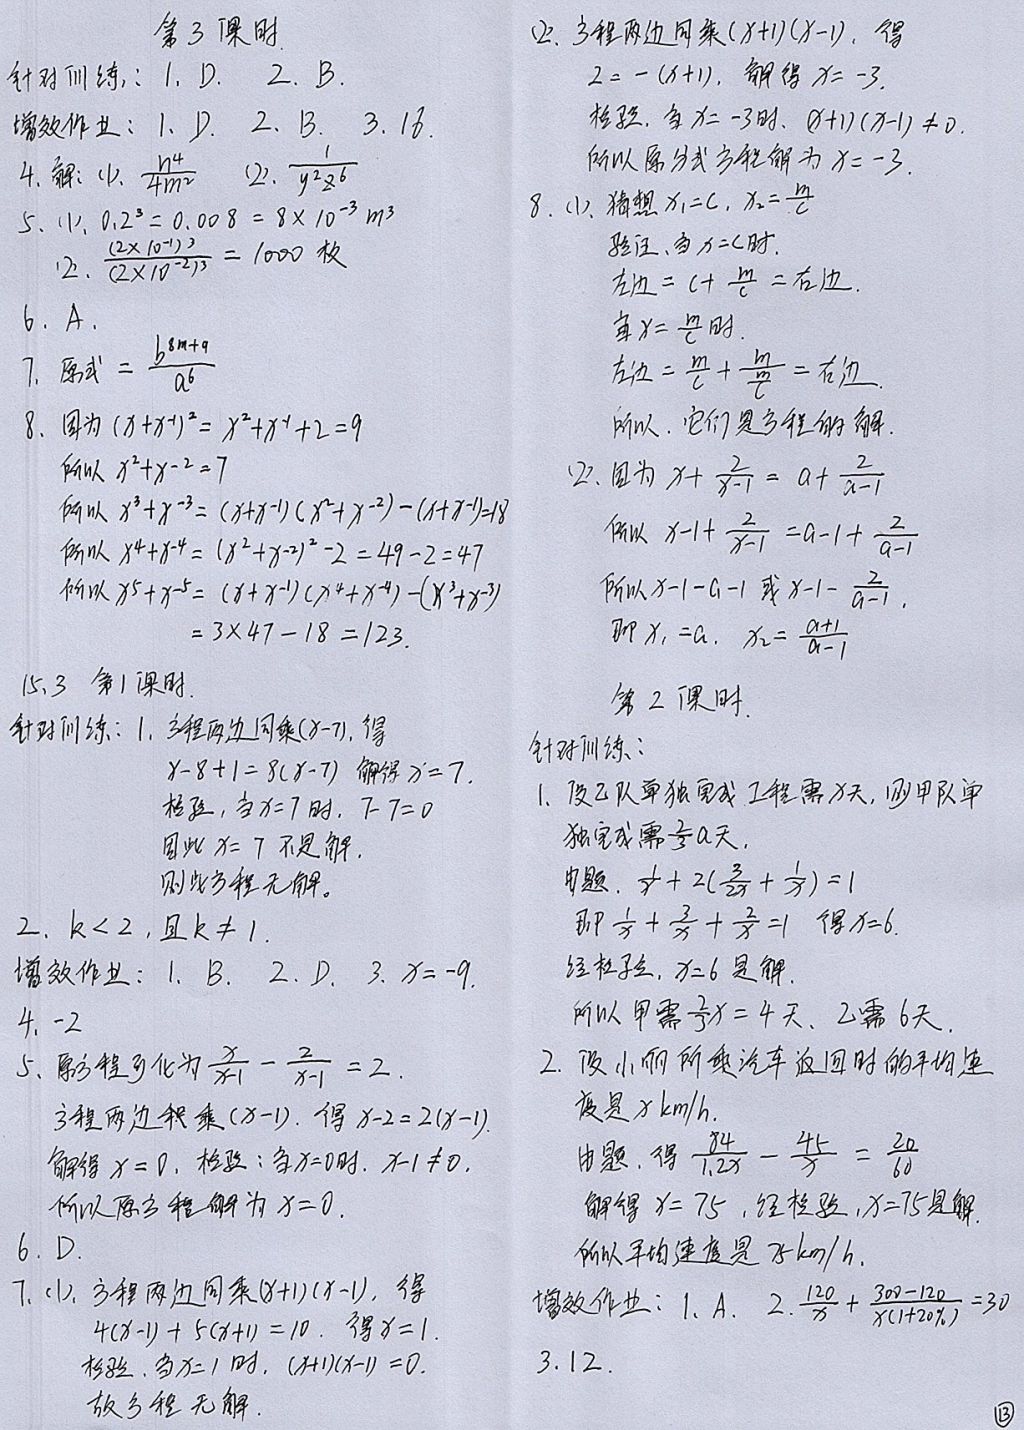 第3课时.
针对训练: 1. D. 2. B.
增效作业: 1. D. 2. B. 3. 16.
4. 解: (1). n⁴/4m² (2). 1/y²z⁶
5. (1). 0.2³ = 0.008 = 8×10⁻³ m³
(2). (2×10⁻¹)³/(2×10⁻²)³ = 1000 枚
6. A.
7. 原式 = b^(8m+9)/a⁶
8. 因为 (x+x⁻¹)² = x²+x⁻¹+2=9
所以 x²+x⁻²=7
所以 x³+x⁻³=(x+x⁻¹)(x²+x⁻²)-(x+x⁻¹)=18
所以 x⁴+x⁻⁴=(x²+x⁻²)²-2=49-2=47
所以 x⁵+x⁻⁵=(x+x⁻¹)(x⁴+x⁻⁴)-(x³+x⁻³)
=3×47-18=123.
15.3 第1课时.
针对训练: 1. 方程两边同乘(x-7), 得
x-8+1=8(x-7) 解得x=7.
检验, 当x=7时, 7-7=0
因此 x=7 不是解.
则此方程无解。
2. k<2, 且k≠1.
增效作业: 1. B. 2. D. 3. x=-9.
4. -2
5. 原方程可化为 x/(x-1) - 2/(x-1) = 2.
方程两边积乘(x-1). 得 x-2=2(x-1).
解得 x=0. 检验: 当x=0时. x-1≠0.
所以原方程解为 x=0.
6. D.
7. (1). 方程两边同乘(x+1)(x-1), 得
4(x-1)+5(x+1)=10. 得x=1.
检验. 当x=1时, (x+1)(x-1)=0.
故方程无解.
(2). 方程两边同乘(x+1)(x-1). 得
2=-(x+1), 解得 x=-3.
检验. 当x=-3时. (x+1)(x-1)≠0.
所以原分式方程解为 x=-3.
8. (1). 猜想 x₁=c, x₂=m/c
验证, 当x=c时.
左边 = c+m/c = 右边.
当x=m/c时.
左边 = m/c + m/(m/c) = 右边.
所以, 它们是方程的解.
(2). 因为 x+2/(x-1) = a+2/(a-1)
所以 x-1+2/(x-1) = a-1+2/(a-1)
所以 x-1-a-1 或 x-1-2/(a-1).
即 x₁=a. x₂=(a+1)/(a-1)
第2课时.
针对训练:
1. 设乙队单独完成工程需x天, 则甲队单
独完成需2/3a天.
由题. 1/x+2(3/2x+1/x)=1
即 1/x+3/x+2/x=1 得x=6.
经检验, x=6是解.
所以甲需2/3x=4天、乙需6天.
2. 设小丽所乘汽车返回时的平均速
度是x km/h.
由题. 得 84/1.2x - 45/x = 20/60
解得 x=75, 经检验, x=75是解.
所以平均速度是75km/h.
增效作业: 1. A. 2. 120/x + (300-120)/x(1+20%) = 30
3. 12.
⑬